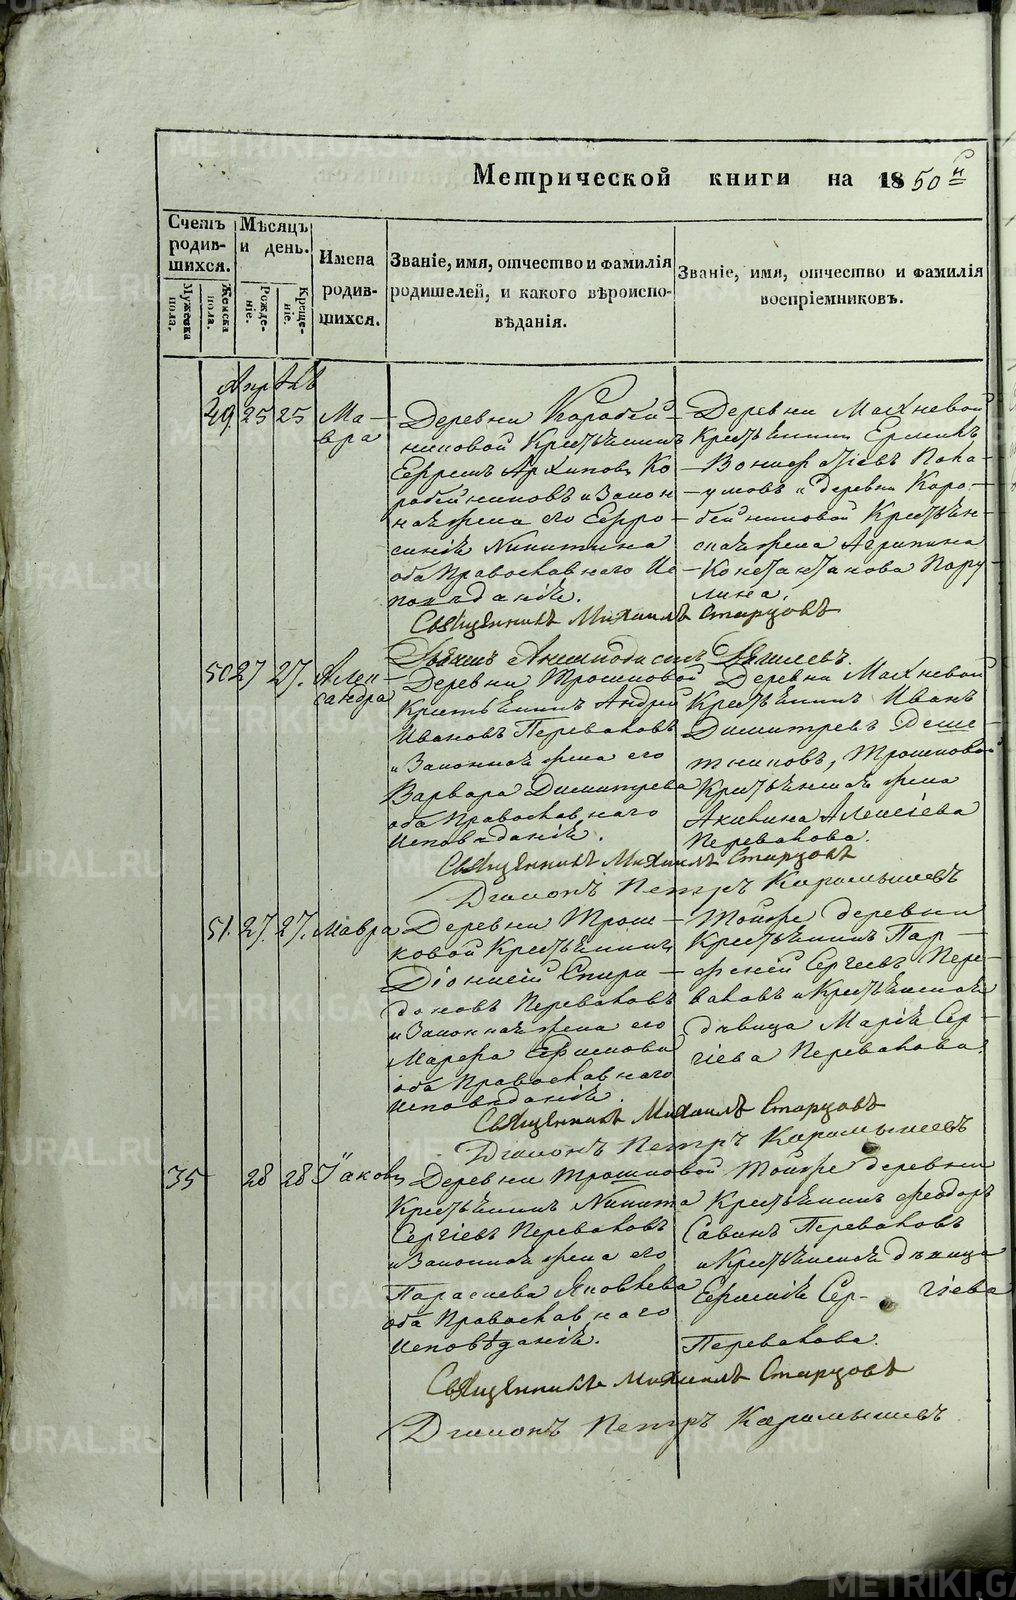 Метрической книги на 1850й
Счетъ родив-шихся.
Мужеска пола.
Женска пола.
Мѣсяцъ и день.
Рожде-ніе.
Креще-ніе.
Имена родив-шихся.
Званіе, имя, отчество и фамилія родителей, и какого вѣроиспо-вѣданія.
Званіе, имя, отчество и фамилія воспріемниковъ.
Апрѣль
49 25 25 Ма-
вра
Деревни Коробей-
никовой Крестьянинъ
Ефремъ Архиповъ Ко
робейниковъ и Закон
ная жена его Евфро-
синія Никитина
оба Православнаго Ис-
повѣданія.
Деревни Махневой
Крестьянинъ
Вонифатіевъ
и деревни Коро-
бейниковой Крестьян-
ская жена Агрипина
Константинова
Священникъ Михаилъ Старцовъ
50 27 27. Алек-
сандра
Деревни Трошковой
Крестьянинъ Андрей
Ивановъ Переваловъ
и Законная жена его
Варвара Димитрева
оба Православнаго
Исповѣданія.
Деревни Махневой
Крестьянинъ Иванъ
Димитревъ
Трошковой
Крестьянская жена
Акилина Алексіева
Перевалова.
Священникъ Михаилъ Старцовъ
Діаконъ Петръ Карамышевъ
51. 27. 27. Мавра
Деревни Трош-
ковой Крестьянинъ
Діонисій Спири-
доновъ Переваловъ
и Законная жена его
Марфа Ефимова
оба Православнаго
Исповѣданія.
Тойже деревни
Крестьянинъ Пар-
феній Сергіевъ Пере-
валовъ и Крестьянская
дѣвица Марія Сер-
гіева Перевалова.
Священникъ Михаилъ Старцовъ
Діаконъ Петръ Карамышевъ
35 28 28 Іаковъ
Деревни Трошковой
Крестьянинъ Никита
Сергіевъ Переваловъ
и Законная жена его
Параскева Яковлева
оба Православнаго
Исповѣданія.
Тойже деревни
Крестьянинъ Феодоръ
Савинъ Переваловъ
и Крестьянская дѣвица
Сер- гіева
Перевалова.
Священникъ Михаилъ Старцовъ
Діаконъ Петръ Карамышевъ
METRIKI.GASO-URAL.RU